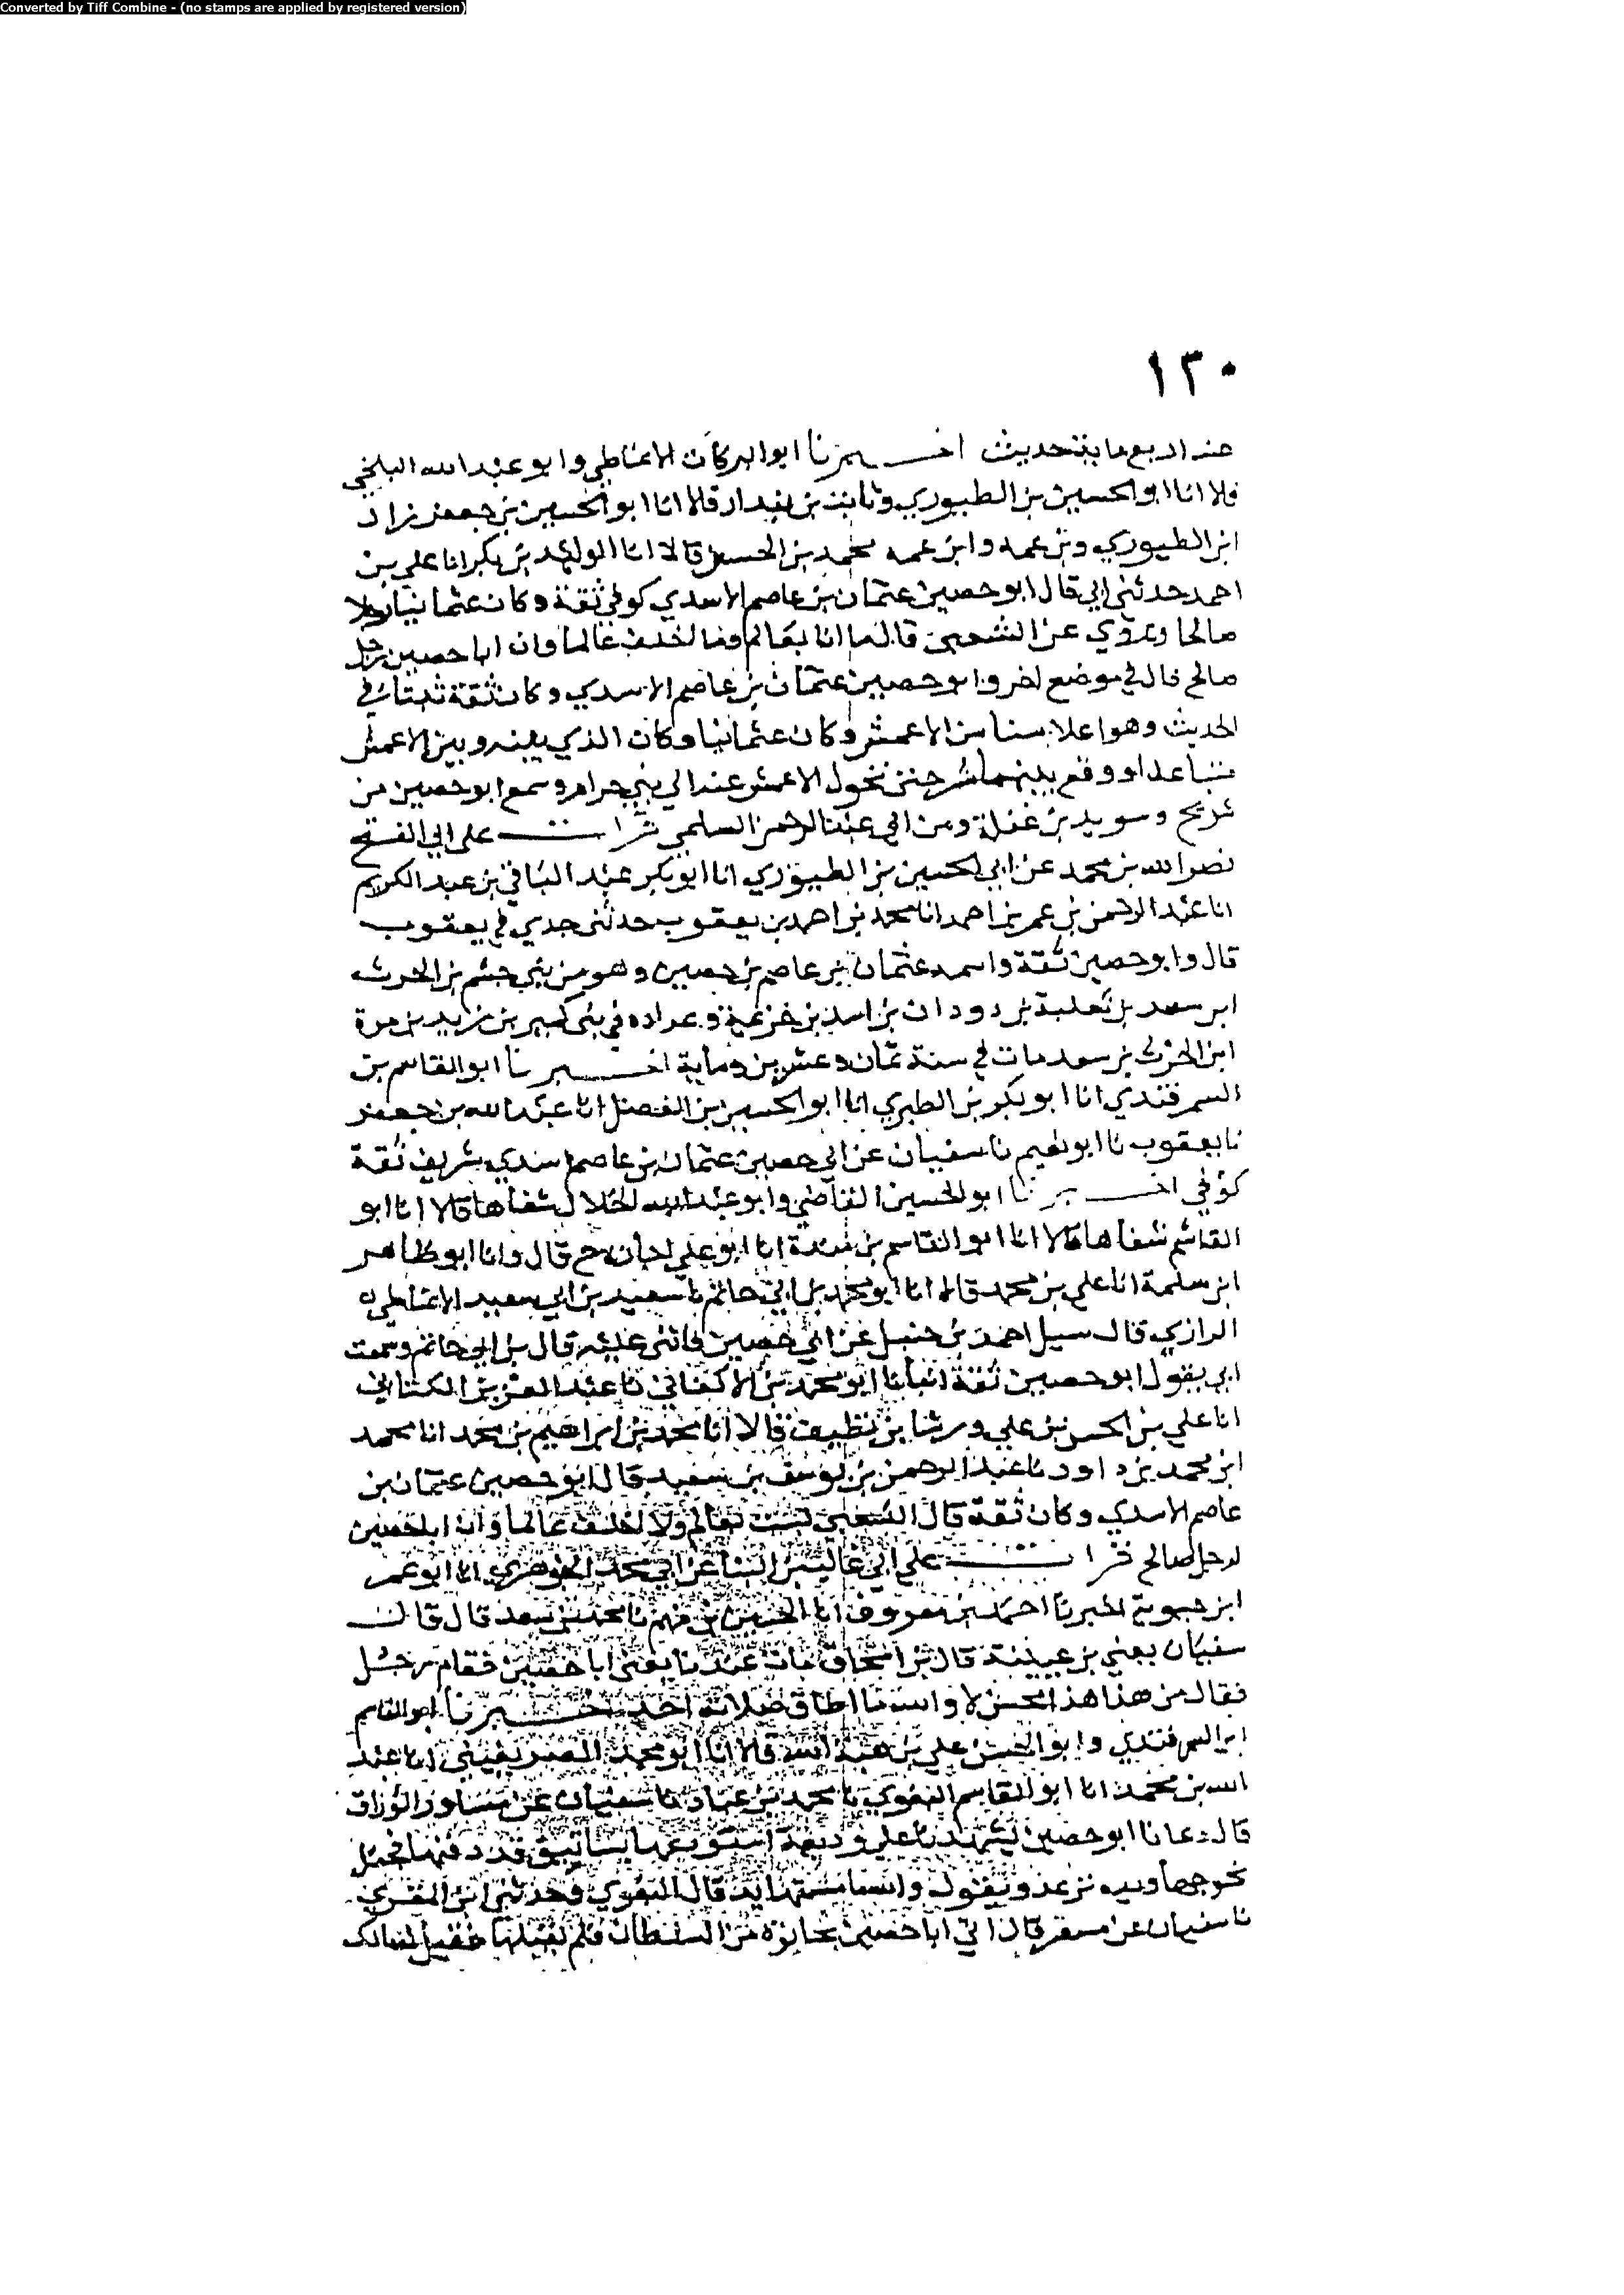 Converted by Tiff Combine - (no stamps are applied by registered version)
١٣٠
عنه اربع ماية حديث اخـــبرنا ابوالبركات الانماطي وابو عبدالله البلخي
قالا انا ابوالحسين بن الطيوري وثابت بن بندار قالا انا ابوالحسين بن جعفر زاد
ابن الطيوري وابن عمه محمد بن الحسن قالا انا الوليد بن بكر انا علي بن
احمد حدثني ابي قال ابو حصين عثمان بن عاصم الاسدي كوفي ثقة وكان عثمانيا رجلا
صالحا ويروي عن الشعبي قال ما انا بعالم وما اخلف عالما وان ابا حصين رجل
صالح قال في موضع اخر وابو حصين عثمان بن عاصم الاسدي وكان ثقة ثبتا في
الحديث وهو اعلا سنا من الاعمش وكان عثمانيا وكان الذي بينه وبين الاعمش
متباعدا ووقع بينهما شر حتى تحول الاعمش عنه الى بني حرام وسمع ابو حصين من
شريح وسويد بن غفلة ومن ابي عبدالرحمن السلمي قرات على ابي الفتح
نصرالله بن محمد عن ابي الحسين بن الطيوري انا ابوبكر عبد الباقي بن عبد الكريم
انا عبد الرحمن بن عمر بن احمد انا محمد بن احمد بن يعقوب حدثني جدي يعقوب
قال وابو حصين ثقة واسمه عثمان بن عاصم بن حصين وهو من بني جشم بن الحرث
ابن سعد بن ثعلبة بن دودان بن اسد بن خزيمة وعداده في بني كبير بن زيد بن مرة
ابن الحرث بن سعد مات في سنة ثمان وعشرين وماية اخـــبرنا ابوالقاسم بن
السمرقندي انا ابو بكر بن الطبري انا ابوالحسين بن الفضل انا عبدالله بن جعفر
نا يعقوب نا ابو نعيم نا سفيان عن ابي حصين عثمان بن عاصم اسدي شريف ثقة
كوفي اخـــبرنا ابوالحسين القاضي وابو عبدالله الخلال شفاها قالا انا ابو
القاسم شفاها قالا انا ابوالقاسم بن مندة انا ابو علي اجازة ح قال وانا ابو طاهر
ابن سلمة انا علي بن محمد قالا انا ابو محمد بن ابي حاتم نا سعيد بن ابي سعيد الانماطي
الرازي قال سيل احمد بن حنبل عن ابي حصين فاثنى عليه قال بن ابي حاتم وسمعت
ابي يقول ابو حصين ثقة انبانا ابو محمد بن الاكفاني نا عبد العزيز الكتاني
انا علي بن الحسن بن علي ورشا بن نظيف قالا انا محمد بن ابراهيم بن محمد انا محمد
ابن محمد بن داود نا عبد الرحمن بن يوسف بن سعيد قال ابو حصين عثمان بن
عاصم الاسدي وكان ثقة قال الشعبي لست بعالم ولا اخلف عالما وان ابا حصين
لرجل صالح قرات على ابي غالب بن البنا عن ابي محمد الجوهري انا ابو عمر
ابن حيوية اخبرنا احمد بن معروف انا الحسين بن فهم نا محمد بن سعد قال قال
سفيان يعني بن عيينة قال بن اسحاق مات عندنا يعني ابا حصين فقام رجل
فقال من هذا هذا المحسن لا والله ما اطاق صلاته احد اخـــبرنا ابو القاسم
ابن السمرقندي وابو الحسن علي بن هبة الله قالا انا ابو محمد الصريفيني انا عبد
الله بن محمد نا ابو القاسم البغوي نا محمد بن عباد نا سفيان عن مساور الوراق
قال دعانا ابو حصين ليشهدنا على وديعة استودعها قد دفنها فجعل
يخرجها ويده ترعد ويقول والله ما مستها يد قال البغوي وحدثني ابن المقري
نا سفيان عن مسعر قال اتي ابا حصين بجايزة من السلطان فلم يقبلها فقيل له مالك